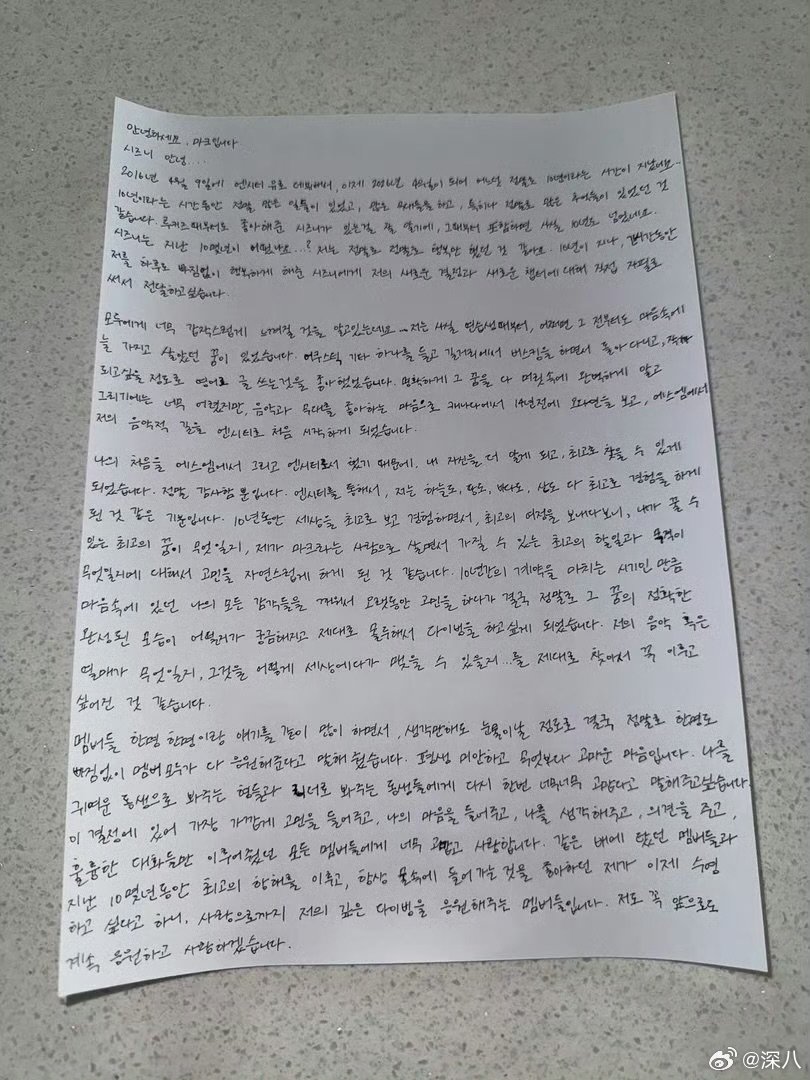 안녕하세요, 마크입니다
시즈니 안녕...
2016년 4월 9일에 엔시티 유로 데뷔해서, 이제 2026년 4월이 되어 어느새 정말로 10년이라는 시간이 지났네요..
10년이라는 시간동안 정말 많은 일들이 있었고, 많은 무대들을 하고, 특히나 정말로 많은 추억들이 있었던 것
같습니다. 루키즈 때부터도 좋아해준 시즈니가 있는걸 잘 알기에, 그때부터 포함하면 사실 10년도 넘었네요.
시즈니는 지난 10몇년이 어땠나요...? 저는 정말로 정말로 행복만 했던 것 같아요. 10년이 지나, 긴 시간동안
저를 하루도 빠짐없이 행복하게 해준 시즈니에게 저의 새로운 결정과 새로운 챕터에 대해 직접 자필로
써서 전달하고싶습니다.
모두에게 너무 갑작스럽게 느껴질 것을 알고있는데요... 저는 사실 연습생때부터, 어쩌면 그 전부터도 마음속에
늘 가지고 살았던 꿈이 있었습니다. 어쿠스틱 기타 하나를 들고 길거리에서 버스킹을 하면서 돌아 다니고, 작가
되고싶을 정도로 영어로 글 쓰는것을 좋아했었습니다. 명확하게 그 꿈을 다 머릿속에 완벽하게 알고
그리기에는 너무 어렸지만, 음악과 무대를 좋아하는 마음으로 캐나다에서 14년전에 오디션을 보고, 에스엠에서
저의 음악적 길을 엔시티로 처음 시작하게 되었습니다.
나의 처음을 에스엠에서 그리고 엔시티로서 했기 때문에, 내 자신을 더 알게 되고, 최고로 찾을 수 있게
되었습니다. 정말 감사할 뿐입니다. 엔시티를 통해서, 저는 하늘도, 땅도, 바다도, 산도 다 최고로 경험을 하게
된 것 같은 기분입니다. 10년동안 세상을 최고로 보고 경험하면서, 최고의 여정을 보내다보니, 내가 꿀 수
있는 최고의 꿈이 무엇일지, 제가 마크라는 사람으로 살면서 가질 수 있는 최고의 할일과 목적이
무엇일지에 대해서 고민을 자연스럽게 하게 된 것 같습니다. 10년간의 계약을 마치는 시기인 만큼
마음속에 있던 나의 모든 감각들을 깨워서 오랫동안 고민을 하다가 결국 정말로 그 꿈의 정확한
완성된 모습이 어떨지가 궁금해지고 제대로 몰두해서 다이빙을 하고싶게 되었습니다. 저의 음악 혹은
열매가 무엇일지, 그것을 어떻게 세상에다가 맺을 수 있을지...를 제대로 찾아서 꼭 이루고
싶어진 것 같습니다.
멤버들 한명 한명이랑 얘기를 같이 많이 하면서, 생각만해도 눈물이날 정도로 결국 정말로 한명도
빠짐없이 멤버 모두가 다 응원해준다고 말해 줬습니다. 평생 미안하고 무엇보다 고마운 마음입니다. 나를
귀여운 동생으로 봐주는 형들과 리더로 봐주는 동생들에게 다시 한번 너무너무 고맙다고 말해주고싶습니다.
이 결정에 있어 가장 가깝게 고민을 들어주고, 나의 마음을 들어주고, 나를 생각해주고, 의견을 주고,
훌륭한 대화들만 이루어줬던 모든 멤버들에게 너무 고맙고 사랑합니다. 같은 배에 탔던 멤버들과
지난 10몇년동안 최고의 항해를 이루고, 항상 물속에 들어가는 것을 좋아하던 제가 이제 수영
하고 싶다고 하니, 사랑으로까지 저의 깊은 다이빙을 응원해주는 멤버들입니다. 저도 꼭 앞으로도
계속 응원하고 사랑하겠습니다.
@深八